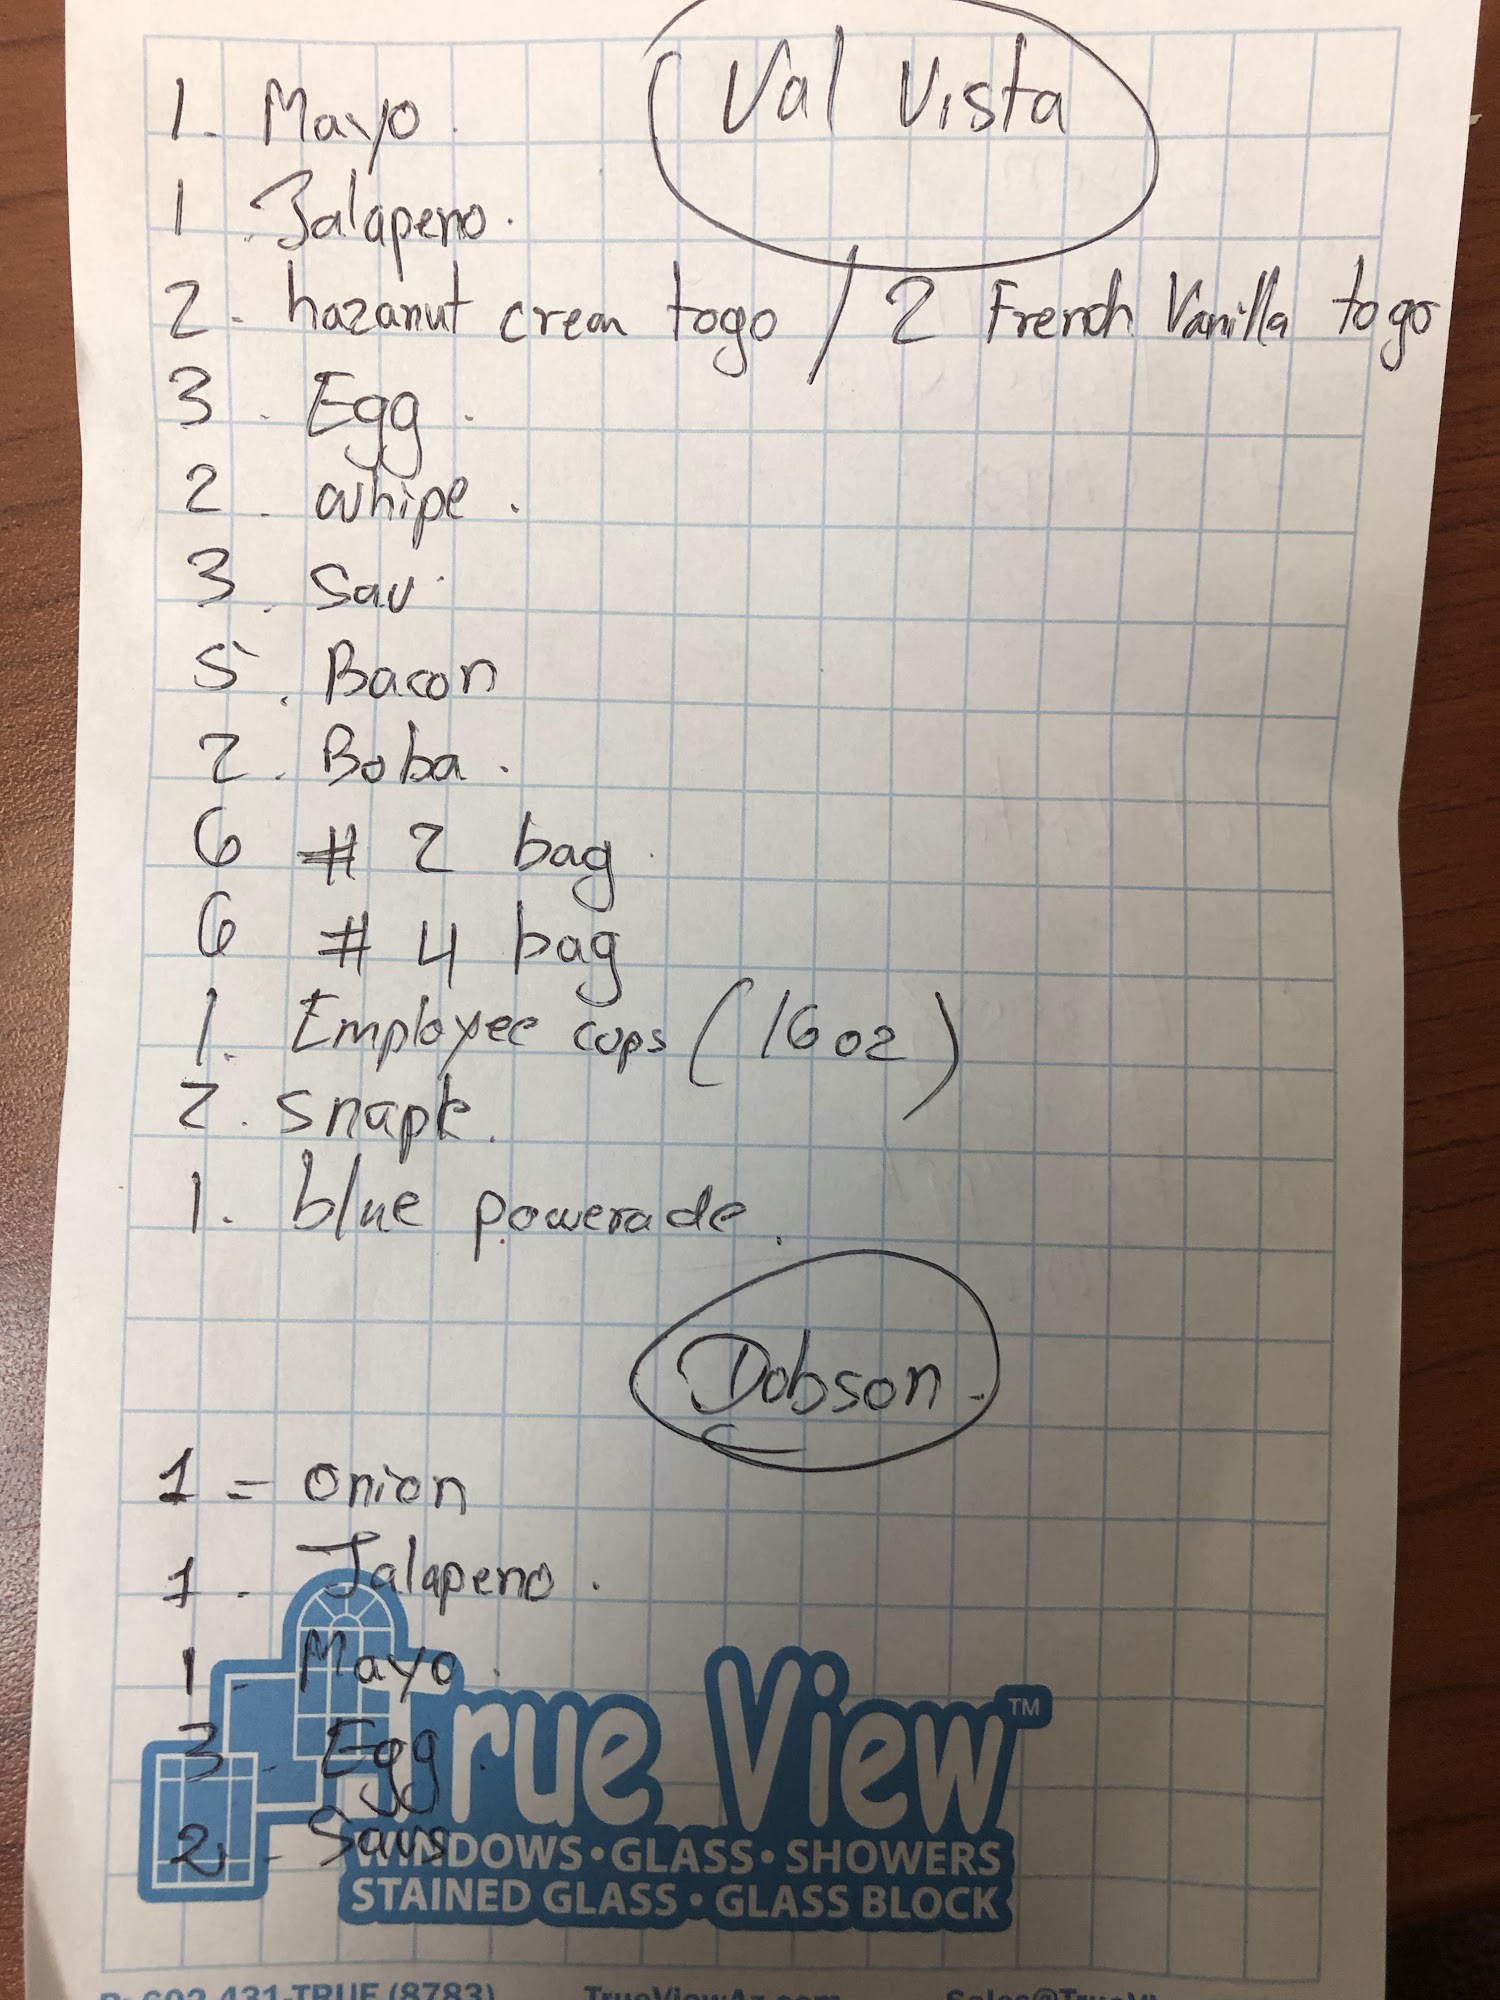 Val Vista
1. Mayo.
1. Jalapeno.
2. hazanut cream togo / 2 French Vanilla togo
3. Egg.
2. whipe.
3. Sau.
5. Bacon
2. Boba.
6 # 2 bag
6 # 4 bag
1. Employee cups (16 oz)
2. snaple.
1. blue powerade.
Dobson.
1 = Onion
1. Jalapeno.
1 - Mayo.
3 - Egg.
2 - Saus
True View™
WINDOWS • GLASS • SHOWERS
STAINED GLASS • GLASS BLOCK
P: 602-431-TRUE (8783) TrueViewAz.com